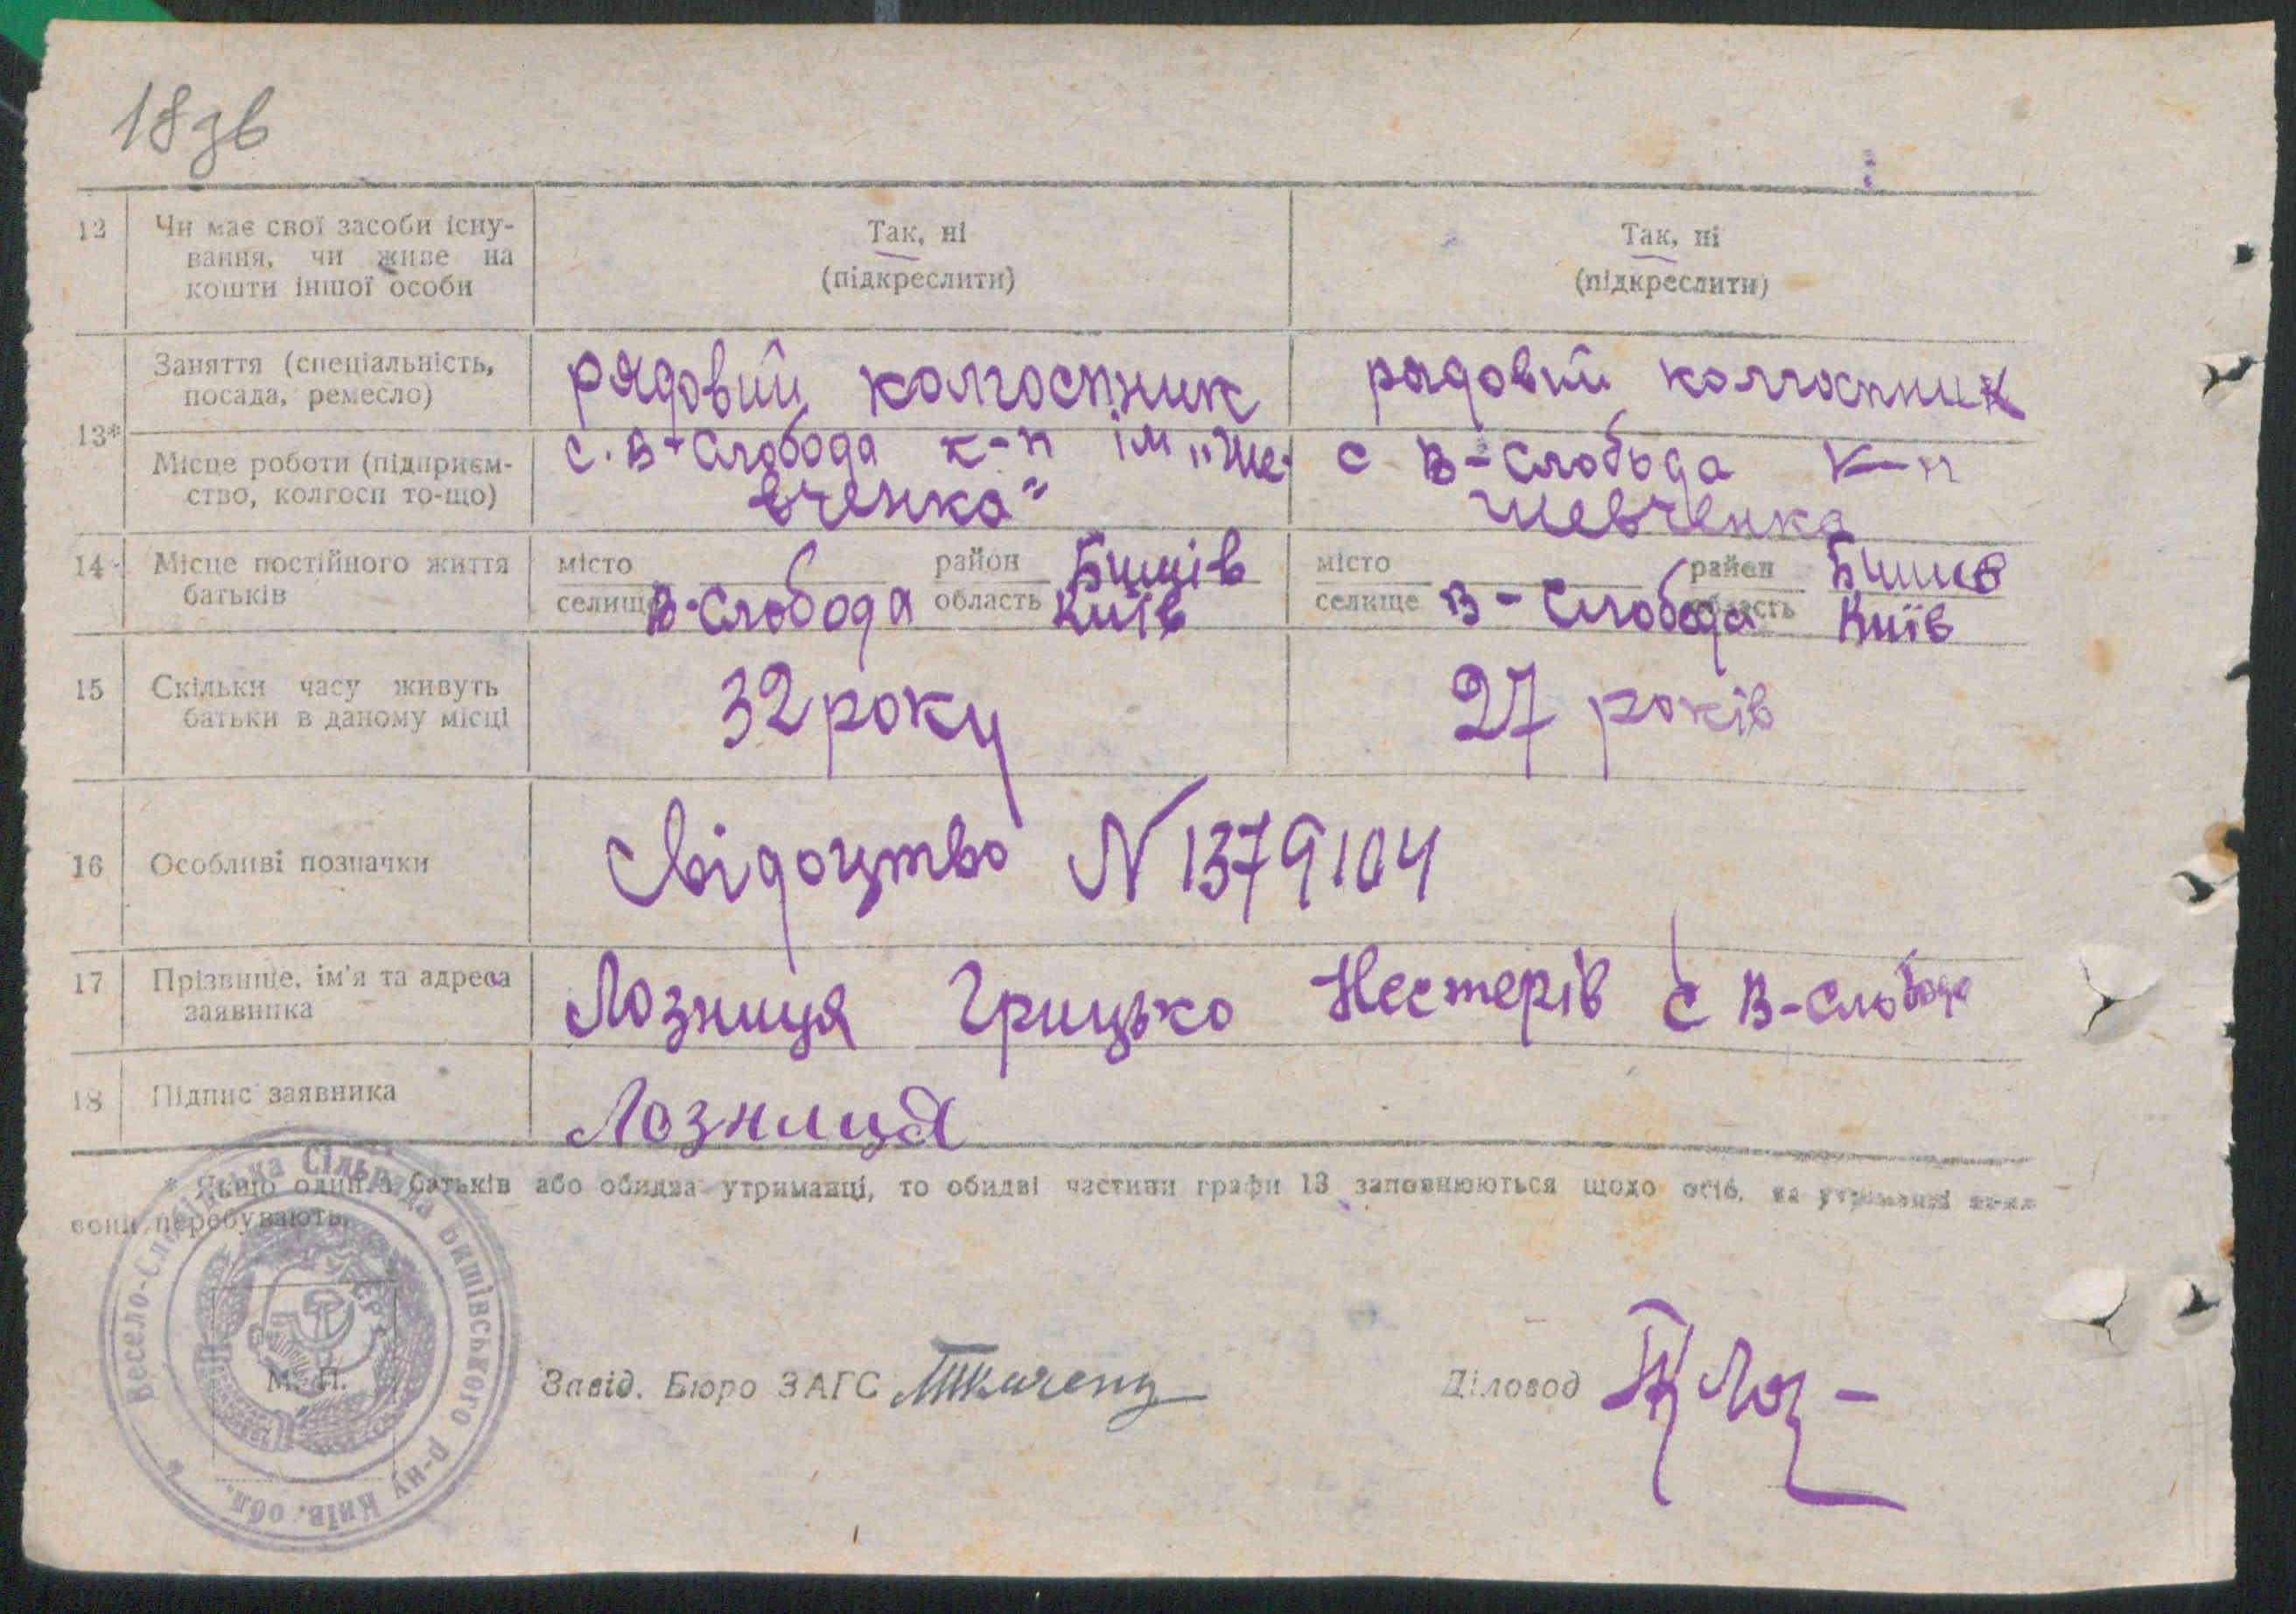 18 зв
12 Чи має свої засоби існу-
вання, чи живе на
кошти іншої особи
Так, ні
(підкреслити)
Так, ні
(підкреслити)
13* Заняття (спеціальність,
посада, ремесло)
рядовий колгоспник
рядовий колгоспник
Місце роботи (підприєм-
ство, колгосп то-що)
с. В-Слобода к-п ім „Ше-
вченка"
с В-Слобода к-п
Шевченка
14 Місце постійного життя
батьків
місто район Бишів
селище В-Слобода область Київ
місто район Бишів
селище В-Слобода область Київ
15 Скільки часу живуть
батьки в даному місці
32 року
27 років
16 Особливі позначки
Свідоцтво N 1379104
17 Прізвище, ім'я та адреса
заявника
Лозниця Грицько Нестерів с В-Слобода
18 Підпис заявника
Лозниця
* Якщо один з батьків або обидва утриманці, то обидві частини графи 13 заповнюються щодо осіб, на утриманні яких
вони перебувають.
Весело-Слобідська Сільрада Бишівського р-ну Київ. обл.
М. П.
Завід. Бюро ЗАГС
Діловод Лоз